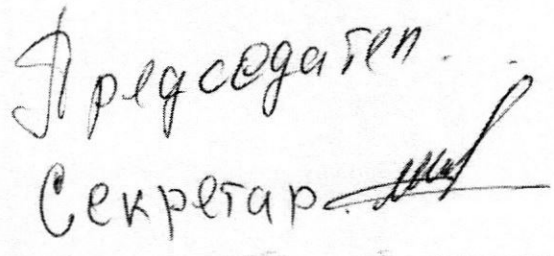 Председател.
Секретар